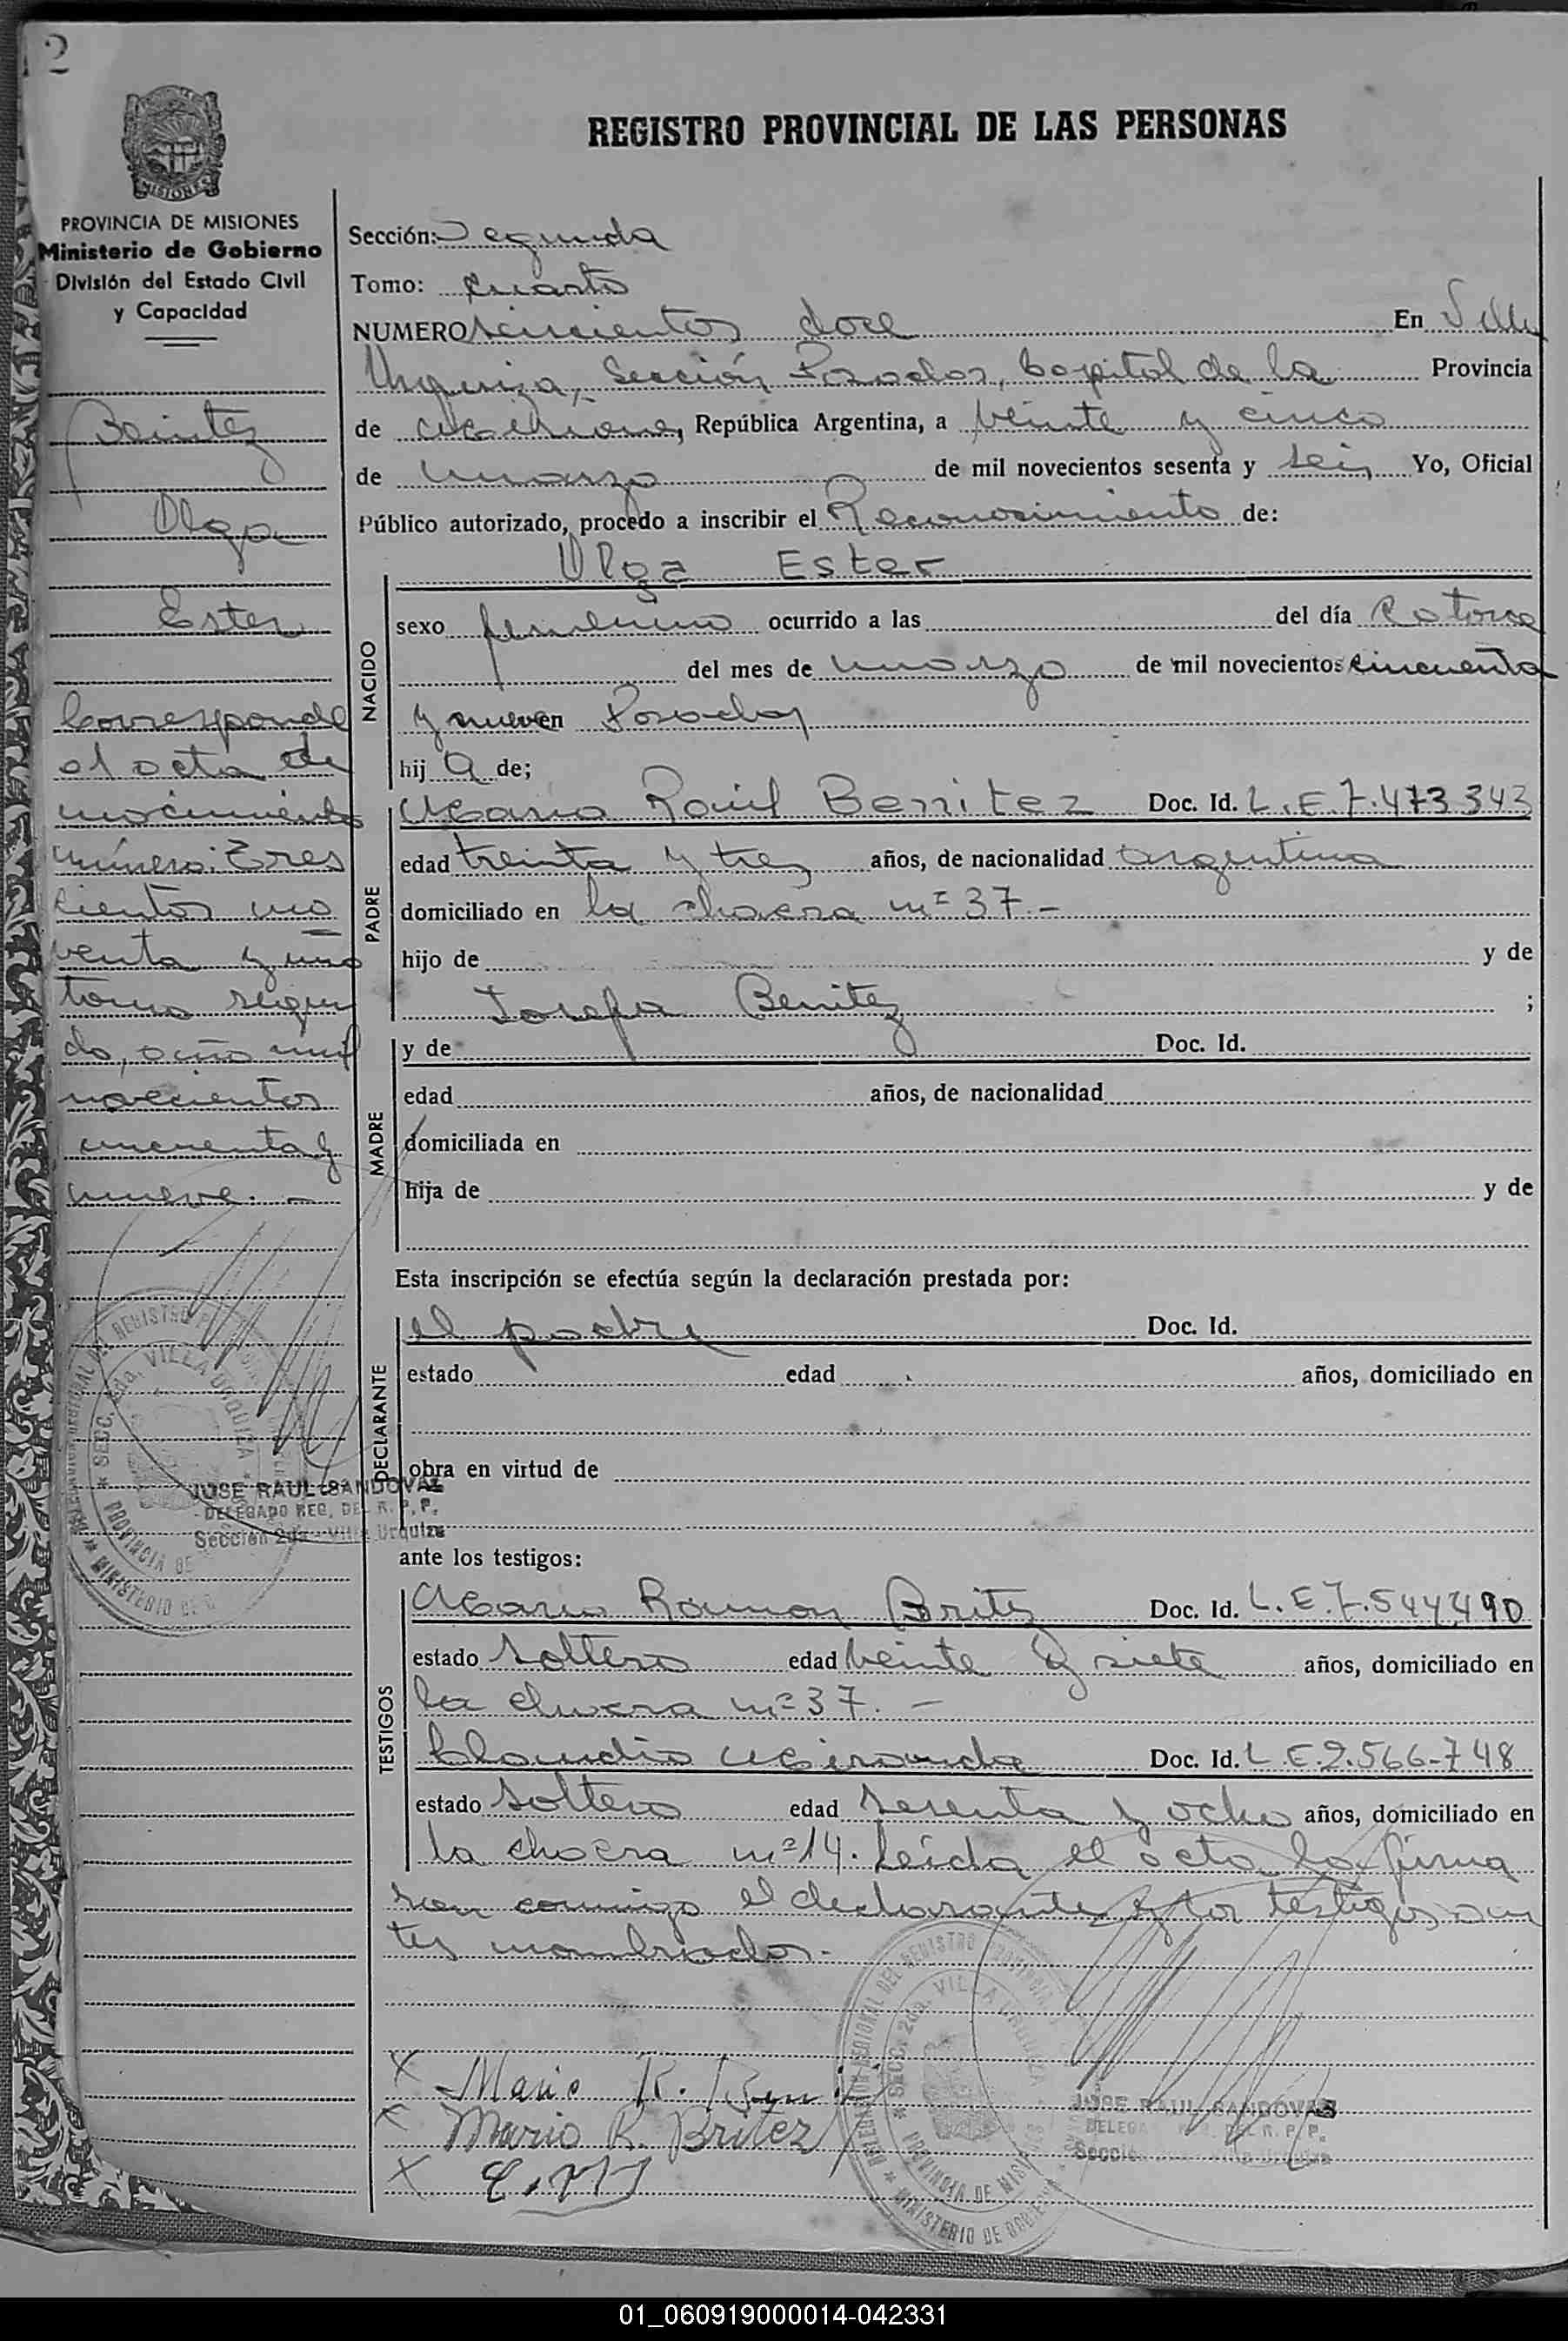 2
MISIONES
PROVINCIA DE MISIONES
Ministerio de Gobierno
División del Estado Civil
y Capacidad
Benitez
Olga
Ester
Corresponde
al acta de
nacimiento
número: Tres
cientos no
venta y uno
tomo segun
do, año mil
novecientos
cincuenta y
nueve. -
JOSE RAUL SANDOVAL
DELEGADO REG. DEL R. P. P.
Sección 2da - Villa Urquiza
REGISTRO PROVINCIAL DE LAS PERSONAS
Sección: Segunda
Tomo: Cuarto
NUMERO seiscientos doce En Villa
Urquiza, Sección Posadas, Capital de la Provincia
de Misiones, República Argentina, a veinte y cinco
de marzo de mil novecientos sesenta y seis Yo, Oficial
Público autorizado, procedo a inscribir el Reconosimiento de:
Olga Ester
NACIDO
sexo femenino ocurrido a las del día Catorce
del mes de marzo de mil novecientos cincuenta
y nueve en Posadas
hij a de;
PADRE
Mario Raúl Benitez Doc. Id. L.E.7.473.343
edad treinta y tres años, de nacionalidad argentina
domiciliado en la chacra nº 37.-
hijo de y de
Josefa Benitez ;
MADRE
y de Doc. Id.
edad años, de nacionalidad
domiciliada en
hija de y de
Esta inscripción se efectúa según la declaración prestada por:
DECLARANTE
el padre Doc. Id.
estado edad años, domiciliado en
obra en virtud de
ante los testigos:
TESTIGOS
Mario Ramon Britez Doc. Id. L.E.7.544.490
estado soltero edad veinte y siete años, domiciliado en
la chacra nº 37. -
Claudio Miranda Doc. Id. L.E.2.566-748
estado soltero edad sesenta y ocho años, domiciliado en
la chacra nº 14. Leida el acta la firma
ron conmigo el declarante y los testigos an
tes nombrados.-
x Mario R. Beni
x Mario R. Britez
x C. M
JOSE RAUL SANDOVAL
DELEGADO REG. DEL R. P. P.
Sección 2da - Villa Urquiza
DELEGACION REGIONAL DEL REGISTRO PROVINCIAL
SECC. 2da. VILLA URQUIZA
PROVINCIA DE MISIONES
MINISTERIO DE GOBIERNO
01_060919000014-042331